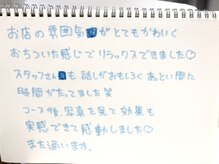 お店の雰囲気がとてもかわいく
おちついた感じでリラックスできました♡
スタッフさんも話しがおもしろくあとい間に
時間がたってました笑
コース後、写真を見て効果も
実感できて感動しました♡
また通います。